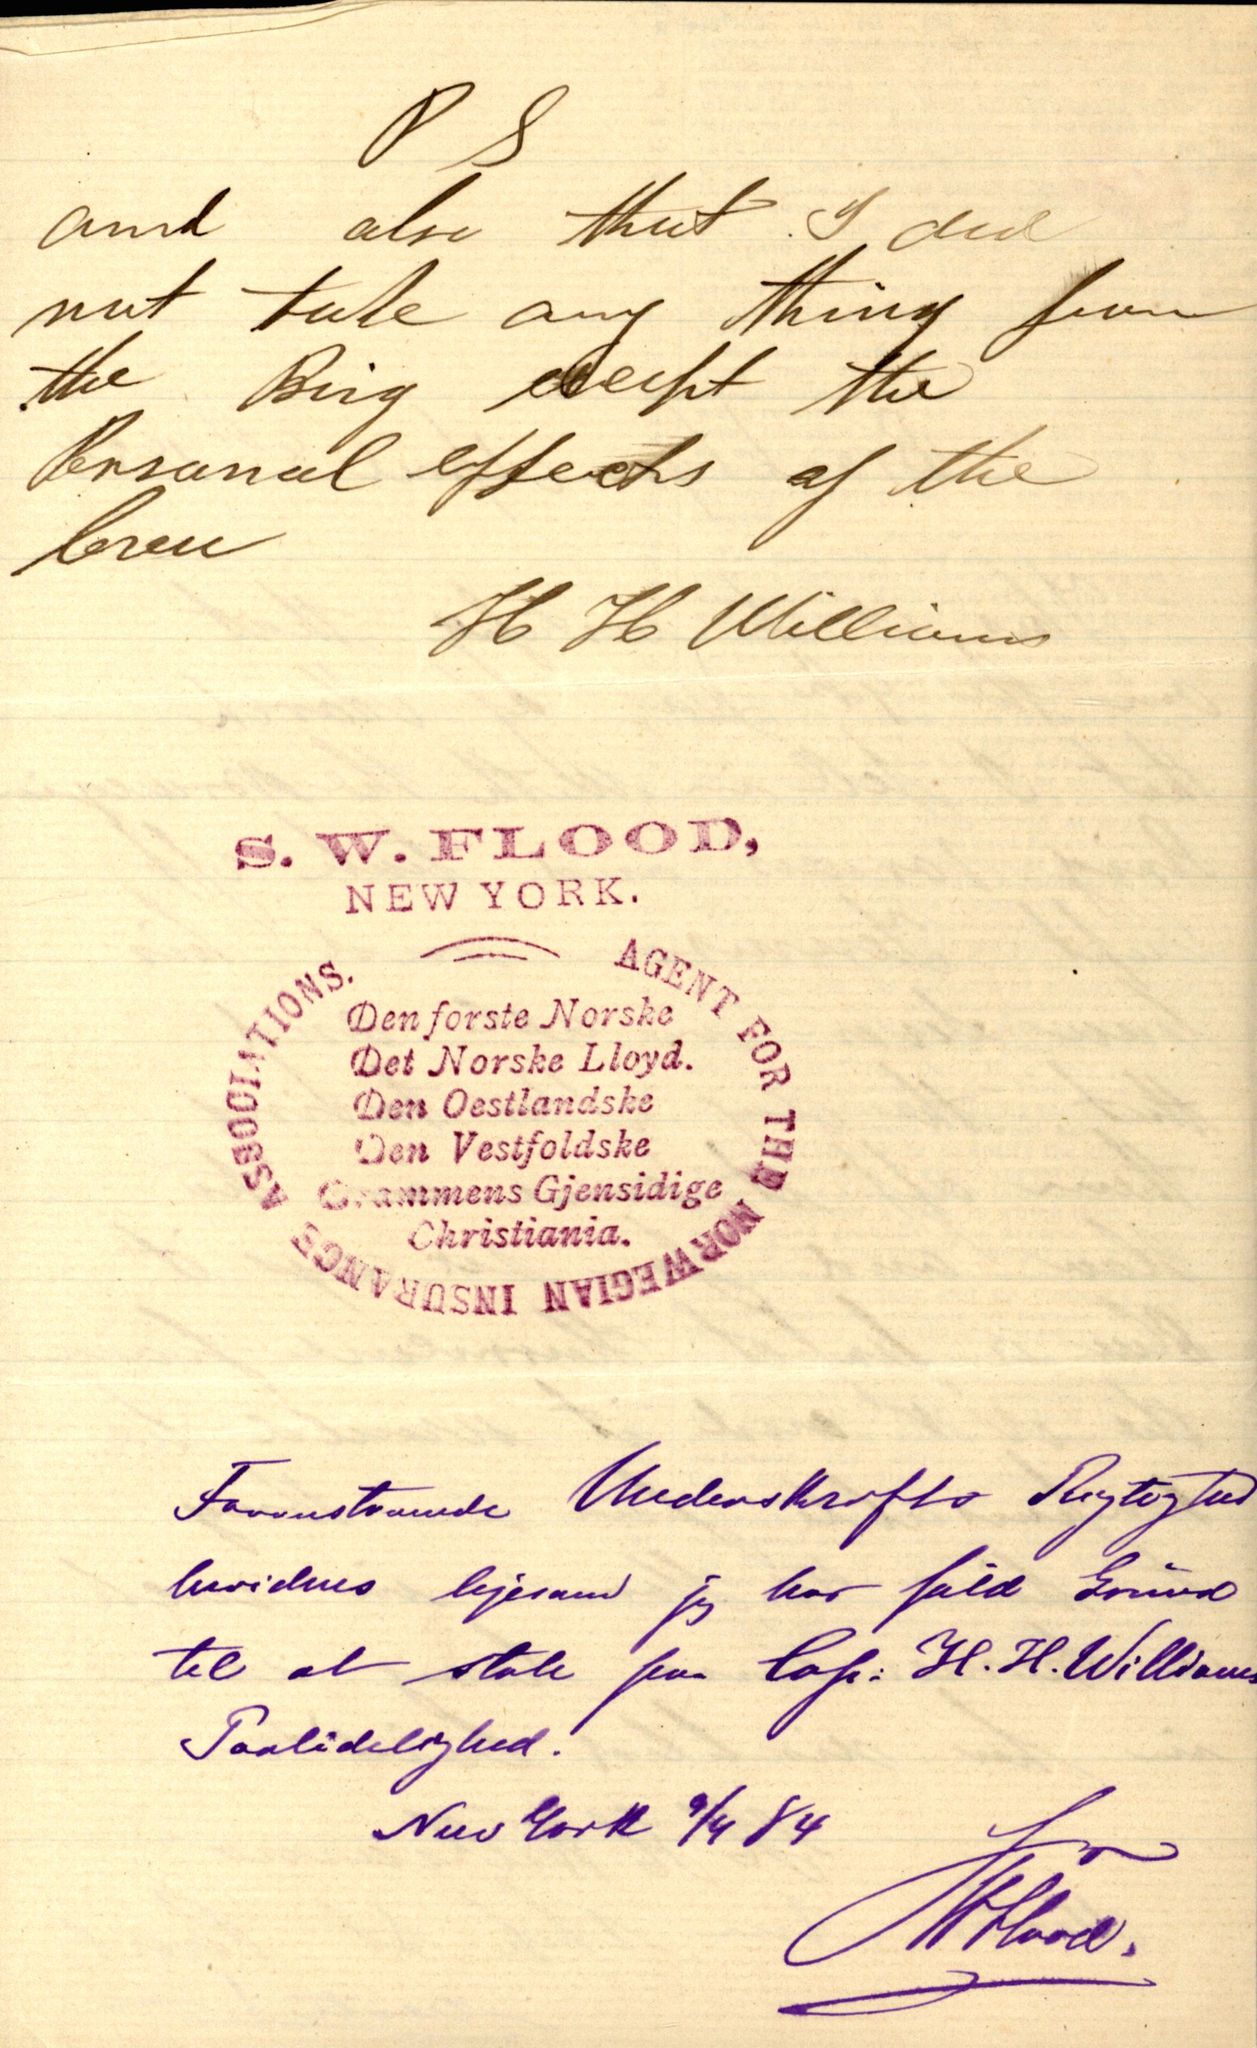 P S
and also that I did
not take any thing from
the Brig except the
Personal effects of the
Crew
H H Williams
S. W. FLOOD,
NEW YORK.
AGENT FOR THE NORWEGIAN INSURANCE ASSOCIATIONS.
Den forste Norske
Det Norske Lloyd.
Den Oestlandske
Den Vestfoldske
Grammens Gjensidige
Christiania.
Foranstaaende Underskrifts Rigtighed
bevidnes ligesom jeg har fuld Grund
til at stole paa Cap: H. H. Williams
Paalidelighed.
New York 9/4 84
SWFlood.